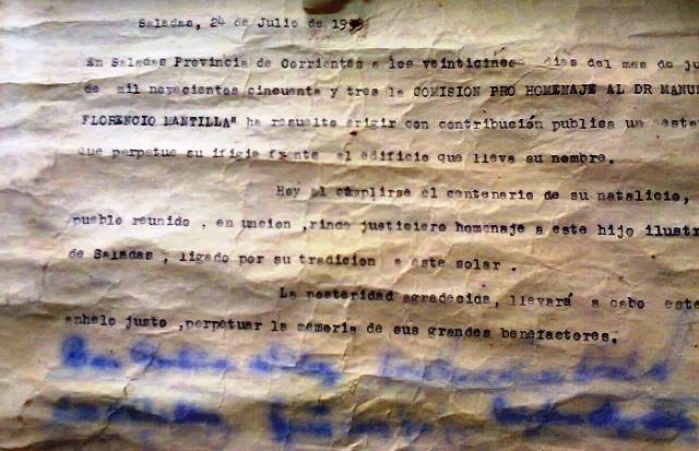 Saladas, 24 de Julio de 19
En Saladas Provincia de Corrientes a los veinticinco dias del mes de ju
de mil novecientos cincuenta y tres la COMISION PRO HOMENAJE AL DR MANU
FLORENCIO MANTILLA" ha resuelto erigir con contribución publica un
que perpetue su ifigie frente al edificio que lleva su nombre.
Hoy al cumplirse el centenario de su natalicio,
pueblo reunido , en uncion ,rinde justiciero homenaje a este hijo ilustr
de Saladas , ligado por su tradicion a este solar .
La posteridad agradecida, llevará a cabo este
anhelo justo ,perpetuar la memoria de sus grandes benefactores.